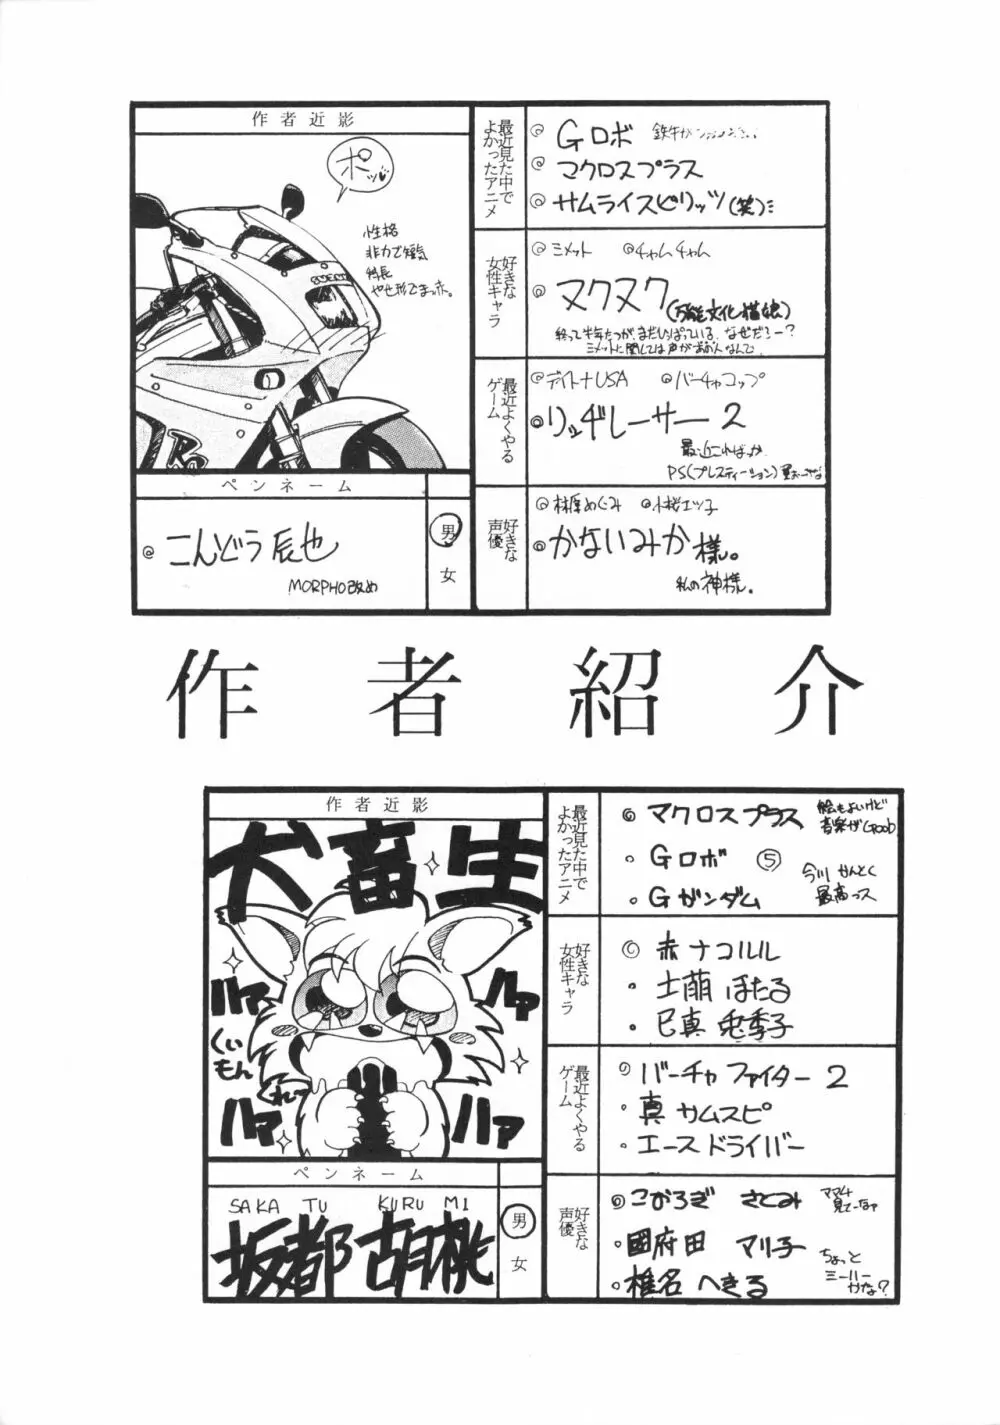 作者近影
ポッ♥
性格
非力で短気
体長
やせ形でまった。
ペンネーム
◎こんどう辰也
MORPHO改め
男
女
最近見た中で
よかったアニメ
◎Gロボ
◎マクロスプラス
◎サムライスピリッツ(笑)
好きな
女性キャラ
◎ミメット ◎チャムチャム
◎ヌクヌク(万能文化猫娘)
終って半年たつが、まだいっぱている。なぜだろー?
ミメットに関しては声があの人なんで
最近よくやる
ゲーム
◎デイトナUSA ◎バーチャコップ
◎リッヂレーサー2
最近こればっか
PS(プレステイーション)
好きな
声優
◎林原めぐみ ◎小桜エツ子
◎かないみか様。
私の神様。
作者紹介
作者近影
犬畜生
ハァ
ハァ
ハァ
ハァ
くいもん
くれー
ペンネーム
SAKA TU KURU MI
坂都胡桃
男
女
最近見た中で
よかったアニメ
◎マクロスプラス 絵もよいけど
音楽がGood
・Gロボ⑤
・Gガンダム 今川かんとく
最高っス
好きな
女性キャラ
◎赤ナコルル
・土萌ほたる
・巳真兎季子
最近よくやる
ゲーム
◎バーチャファイター2
・真サムスピ
・エースドライバー
好きな
声優
◎こおろぎさとみ ママ4
見てーなァ
・國府田マリ子
・椎名へきる ちょっと
ミーハー
かな?